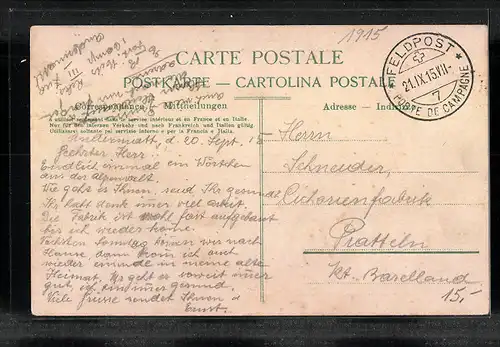 1915
CARTE POSTALE
POSTKARTE - CARTOLINA POSTALE
Correspondance - Mitteilungen
Adresse - Indirizzo
A utiliser seulement dans le service intérieur et en France et en Italie.
Nur für den internen Verkehr und nach Frankreich und Italien gültig
Utilizzarsi soltanto nel servizio interno e per la Francia e l'Italia.
FELDPOST
21.IX.15 VII
7
POSTE DE CAMPAGNE
d. 20. Sept. 15
Geehrter Herr!
Endlich einmal ein Wörtchen
aus der Alpenwelt.
Wie gehts es Ihnen, seid Ihr gesund
Ihr habt denk immer viel arbeit.
Die Fabrik ist wohl fast aufgebaut
bis ich wieder home.
Nächsten Sonntag komen wir nach
Hause dann komm ich auch
wieder einmal in meine alte
Heimat. Es geht es soweit immer
gut, ich bin immer gesund.
Viele Grüsse sendet Ihnen d
Ernst.
Herrn
Schneider,
Cichorienfabrik
Pratteln
Kt. Baselland
15.-